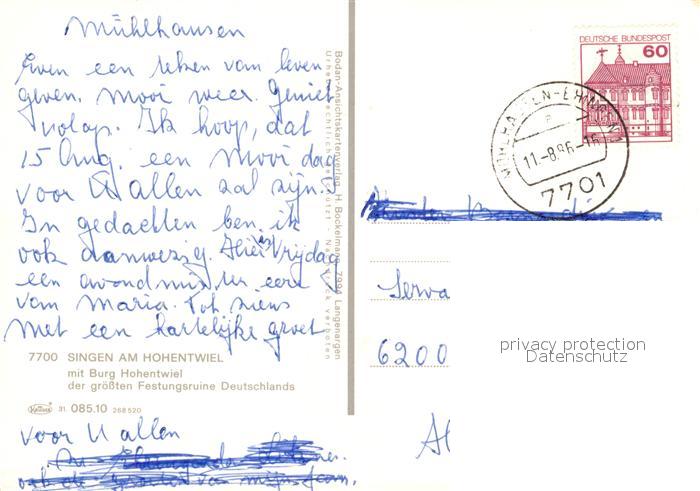 Mühlhausen
Even een teken van leven
geven. Mooi weer. Geniet
volop. Ik hoop, dat
15 Aug. een mooi dag
voor U allen zal zijn.
In gedachten ben ik
ook aanwezig. Hier is Vrijdag
een avondmis ter eere
van Maria. Tot ziens
Met een hartelijke groet
7700 SINGEN AM HOHENTWIEL
mit Burg Hohentwiel
der größten Festungsruine Deutschlands
31. 085.10 268 520
voor U allen
Bodan-Ansichtskartenverlag H. Bockelmann, 7994 Langenargen
Urheberrechtlich geschützt - Nachdruck verboten
DEUTSCHE BUNDESPOST
60
MÜHLHAUSEN-EHINGEN 1
11.-8.86.-16
7701
Serva
6200
privacy protection
Datenschutz